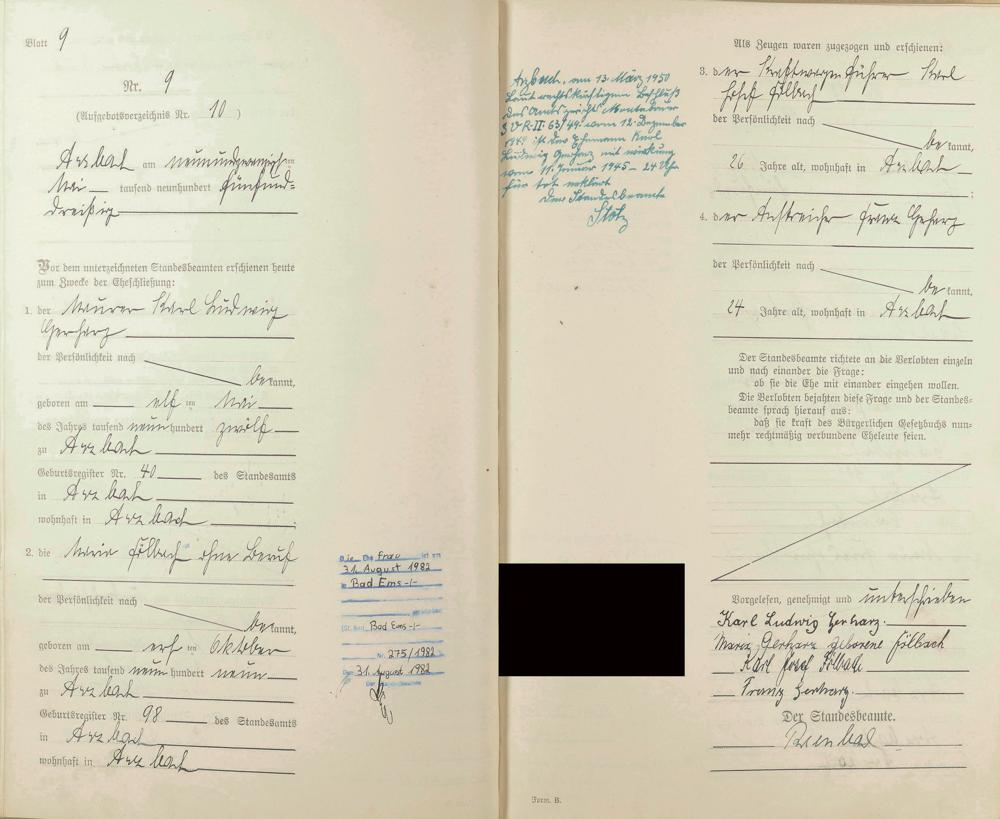 Blatt 9
Nr. 9
(Aufgebotsverzeichnis Nr. 10)
Arzbach am neunundzwanzigsten
Mai tausend neunhundert fünfund=
dreißig
Vor dem unterzeichneten Standesbeamten erschienen heute
zum Zwecke der Eheschließung:
1. der Maurer Karl Ludwig
Gerharz
der Persönlichkeit nach
bekannt,
geboren am elf ten Mai
des Jahres tausend neunhundert zwölf
zu Arzbach
Geburtsregister Nr. 40 des Standesamts
in Arzbach
wohnhaft in Arzbach
2. die Maria Fölbach ohne Beruf
der Persönlichkeit nach
bekannt,
geboren am ten Oktober
des Jahres tausend neunhundert neun
zu Arzbach
Geburtsregister Nr. 98 des Standesamts
in Arzbach
wohnhaft in Arzbach
Die Ehefrau ist am
31. August 1982
Bad Ems -/-
Bad Ems -/-
Nr. 275/1982
Den 31. August 1982
Der Standesbeamte
Arzbach, am 13. März 1950
Laut rechtskräftigem Beschluß
des Amtsgerichts Montabaur
5 UR. II. 63/49 vom 12. Dezember
1949 ist der Ehemann Karl
Ludwig Gerharz mit Wirkung
vom 11. Januar 1945 - 24 Uhr
für tot erklärt
Der Standesbeamte
Stotz
Als Zeugen waren zugezogen und erschienen:
3. der Kraftwagenführer Karl
Josef Fölbach
der Persönlichkeit nach
bekannt,
26 Jahre alt, wohnhaft in Arzbach
4. der Anstreicher Franz Gerharz
der Persönlichkeit nach
bekannt,
24 Jahre alt, wohnhaft in Arzbach
Der Standesbeamte richtete an die Verlobten einzeln
und nach einander die Frage:
ob sie die Ehe mit einander eingehen wollen.
Die Verlobten bejahten diese Frage und der Standes-
beamte sprach hierauf aus:
daß sie kraft des Bürgerlichen Gesetzbuchs nun-
mehr rechtmäßig verbundene Eheleute seien.
Vorgelesen, genehmigt und unterschrieben
Karl Ludwig Gerharz.
Maria Gerharz geborene Fölbach
Karl Josef Fölbach
Franz Gerharz.
Der Standesbeamte.
Form. B.